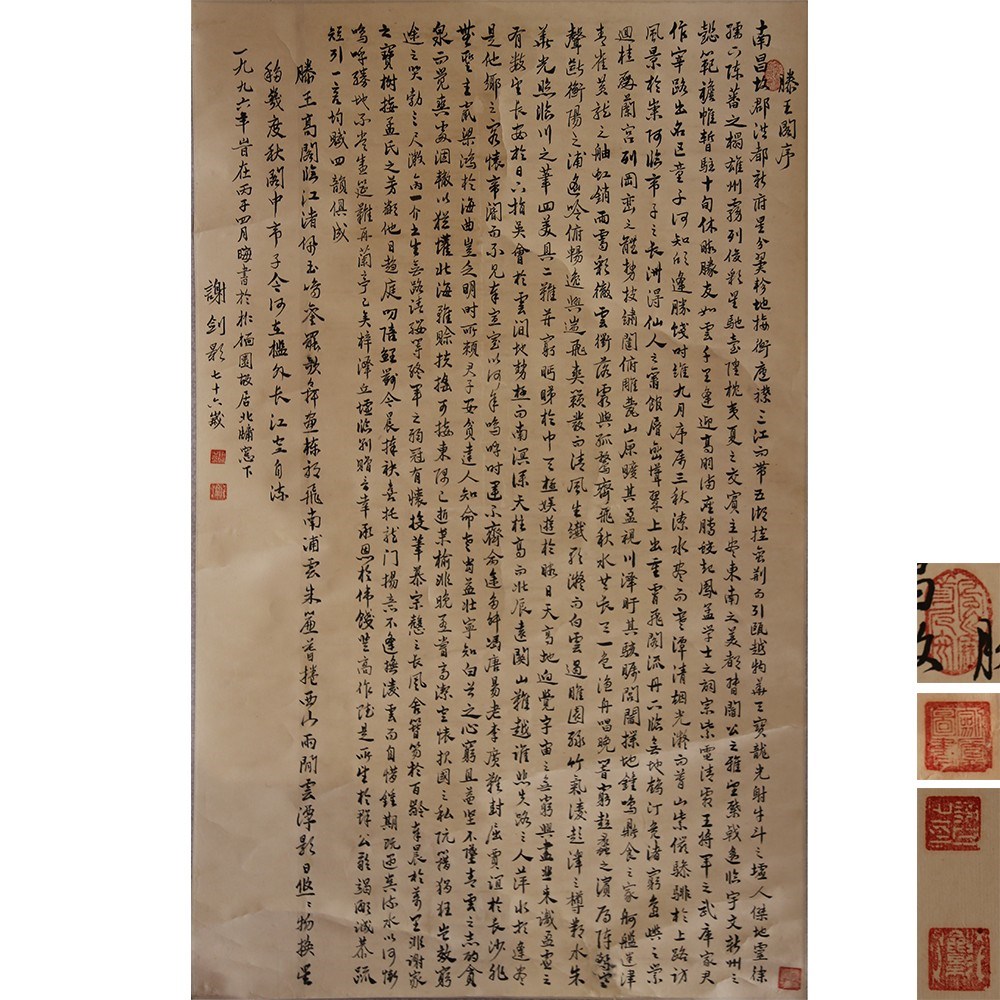 滕王閣序
南昌故郡洪都新府星分翼軫地接衡廬襟三江而帶五湖控蠻荊而引甌越物華天寶龍光射牛斗之墟人傑地靈徐
孺下陳蕃之榻雄州霧列俊彩星馳臺隍枕夷夏之交賓主盡東南之美都督閻公之雅望棨戟遙臨宇文新州之
懿範襜帷暫駐十旬休暇勝友如雲千里逢迎高朋滿座騰蛟起鳳孟学士之詞宗紫電清霜王將軍之武庫家君
作宰路出名區童子何知躬逢勝餞時維九月序屬三秋潦水盡而寒潭清烟光凝而暮山紫儼驂騑於上路訪
風景於崇阿臨帝子之長洲得仙人之舊館層巒聳翠上出重霄飛閣流丹下臨無地鶴汀鳧渚窮島嶼之縈
迴桂殿蘭宮列岡巒之體勢披繡闥俯雕甍山原曠其盈視川澤盱其駭矚閭閻撲地鐘鳴鼎食之家舸艦迷津
青雀黃龍之舳虹銷雨霽彩徹雲衢落霞與孤鶩齊飛秋水共長天一色漁舟唱晚響窮彭蠡之濱雁陣驚寒
聲斷衡陽之浦遙吟俯暢逸興遄飛爽籟發而清風生纖歌凝而白雲遏睢園綠竹氣凌彭澤之樽鄴水朱
華光照臨川之筆四美具二難并窮睇眄於中天極娛遊於暇日天高地迥覺宇宙之無窮興盡悲來識盈虛之
有數望長安於日下指吳會於雲間地勢極而南溟深天柱高而北辰遠關山難越誰悲失路之人萍水相逢盡
是他鄉之客懷帝閽而不見奉宣室以何年嗚呼時運不齊命途多舛馮唐易老李廣難封屈賈誼於長沙非
無聖主竄梁鴻於海曲豈乏明時所賴君子安貧達人知命老當益壯寧知白首之心窮且益堅不墜青雲之志酌貪
泉而覺爽處涸轍以猶懽北海雖賒扶搖可接東隅已逝桑榆非晚孟嘗高潔空懷報國之私阮籍猖狂豈效窮
途之哭勃三尺微命一介書生無路請纓等終軍之弱冠有懷投筆慕宗愨之長風舍簪笏於百齡奉晨於萬里非謝家
之寶樹接孟氏之芳鄰他日趨庭叨陪鯉對今晨捧袂喜托龍門楊意不逢撫凌雲而自惜鍾期既遇奏流水以何慚
嗚呼勝地不常盛筵難再蘭亭已矣梓澤丘墟臨別贈言幸承恩於偉餞登高作賦是所望於群公敢竭鄙誠恭疏
短引一言均賦四韻俱成
滕王高閣臨江渚佩玉鳴鑾罷歌舞畫棟朝飛南浦雲朱簾暮捲西山雨閒雲潭影日悠悠物換星
移幾度秋閣中帝子今何在檻外長江空自流
一九九六年時在丙子四月晦書於栖園故居北牖窓下
謝劍影七十六歲